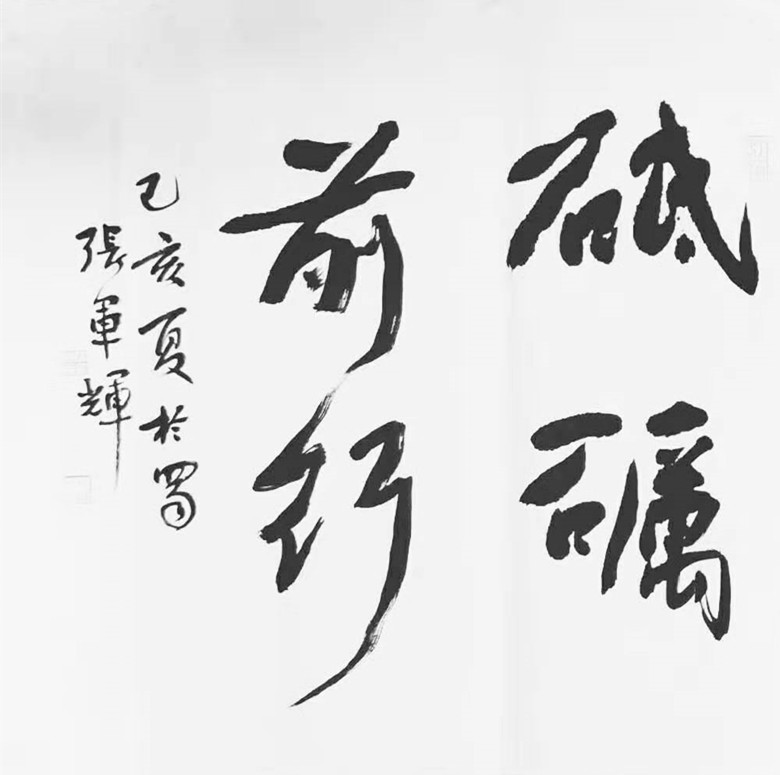 砥礪
前行
己亥夏於蜀
張軍輝